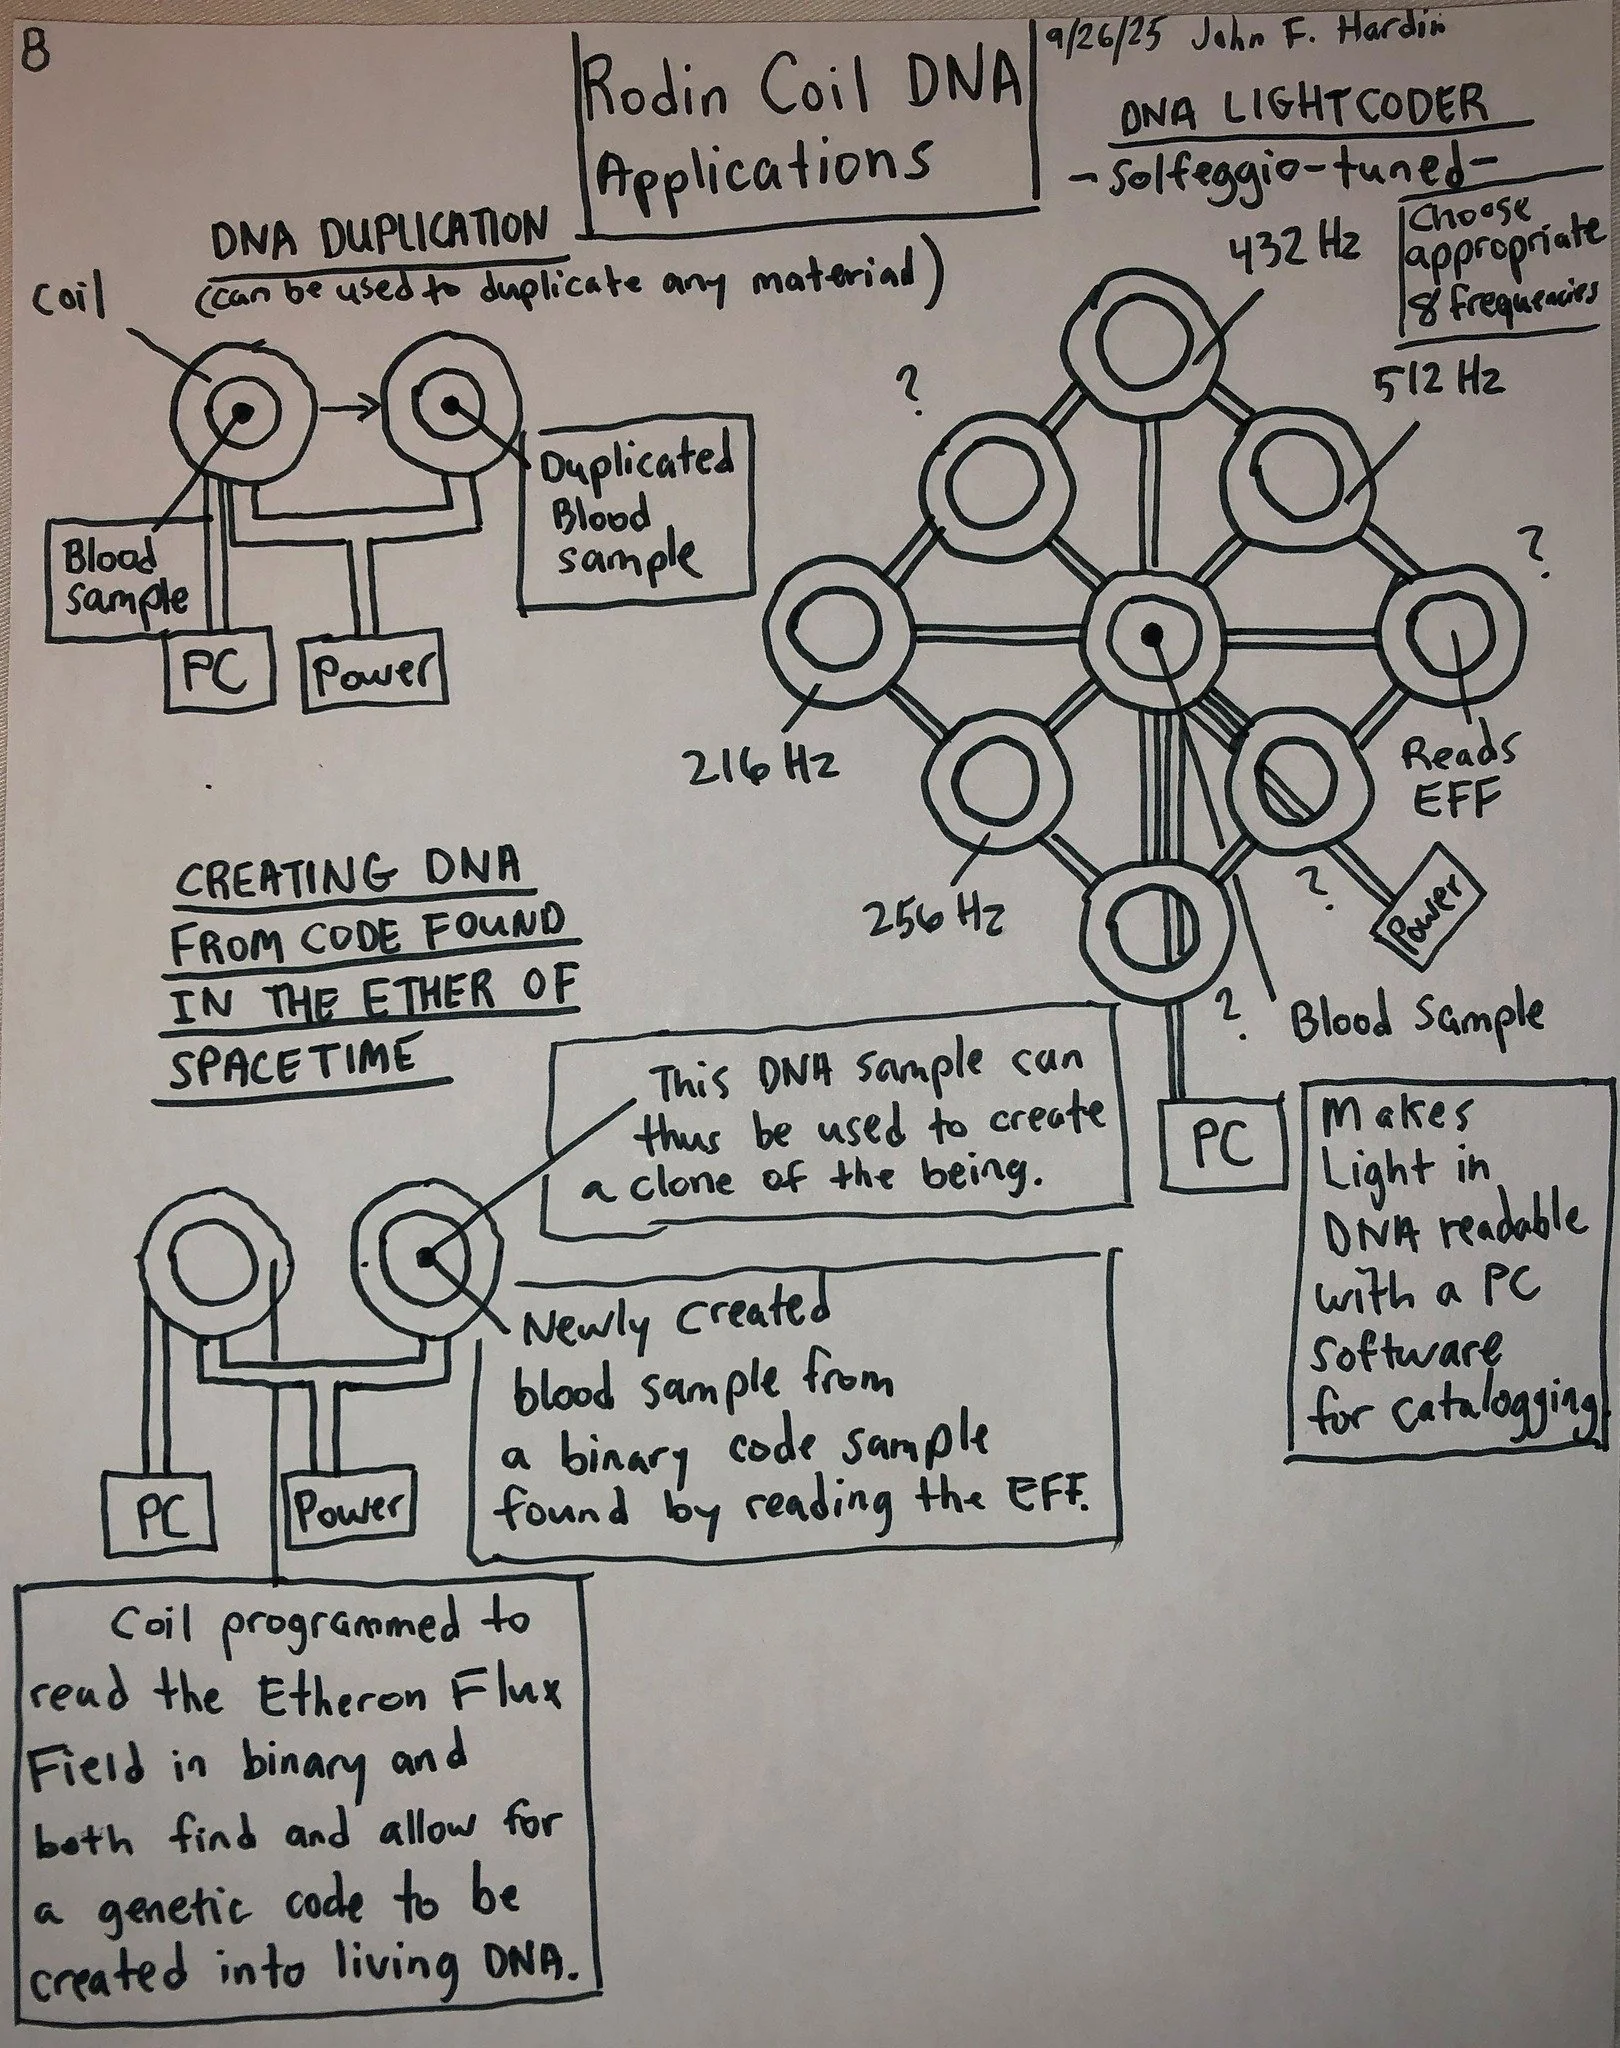 8
Rodin Coil DNA
Applications
9/26/25 John F. Hardin
DNA LIGHTCODER
-Solfeggio-tuned-
Choose
appropriate
8 frequencies
432 Hz
512 Hz
?
?
Reads
EFF
216 Hz
256 Hz
?
Power
?
Blood Sample
PC
Makes
Light in
DNA readable
with a PC
software
for catalogging.
DNA DUPLICATION
(can be used to duplicate any material)
coil
Blood
sample
Duplicated
Blood
sample
PC
Power
CREATING DNA
FROM CODE FOUND
IN THE ETHER OF
SPACETIME
This DNA sample can
thus be used to create
a clone of the being.
Newly created
blood sample from
a binary code sample
found by reading the EFF.
PC
Power
Coil programmed to
read the Etheron Flux
Field in binary and
both find and allow for
a genetic code to be
created into living DNA.